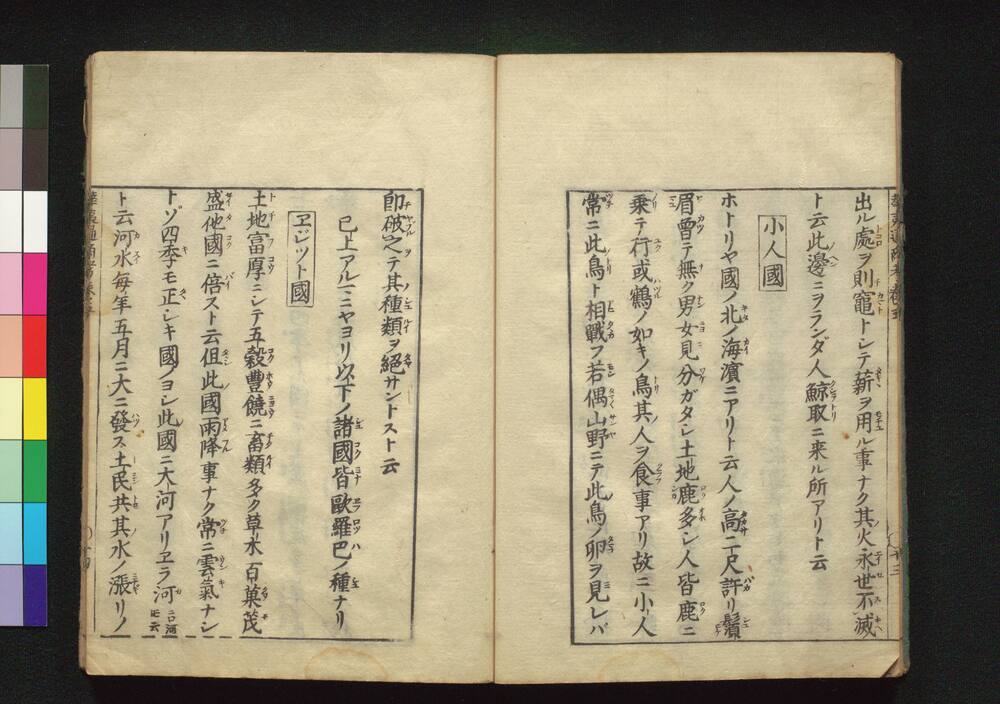 出ル處ヲ則竈トシテ薪ヲ用ル事ナク其火永世不滅
ト云此邊ニヲランダ人鯨取ニ来ル所アリト云
小人國
ホトリヤ國ノ北ノ海濱ニアリト云人ノ高二尺許リ鬚
眉曾テ無ク男女見分ガタシ土地鹿多シ人皆鹿ニ
乗テ行或鶴ノ如キノ鳥其人ヲ食事アリ故ニ小人
常ニ此鳥ト相戰フ若偶山野ニテ此鳥ノ卵ヲ見レバ
即破之テ其種類ヲ絕サントスト云
已上アルマニヤヨリ以下ノ諸國皆歐羅巴ノ種ナリ
ヱジット國
土地富厚ニシテ五穀豐饒ニ畜類多ク草木百菓茂
盛他國ニ倍スト云但此國雨降事ナク常ニ雲氣ナシ
ト゚ソ四季モ正シキ國ノヨシ此國ニ大河アリヱラ河
ト云河水每年五月ニ大ニ發ス土民共其水ノ漲リノ